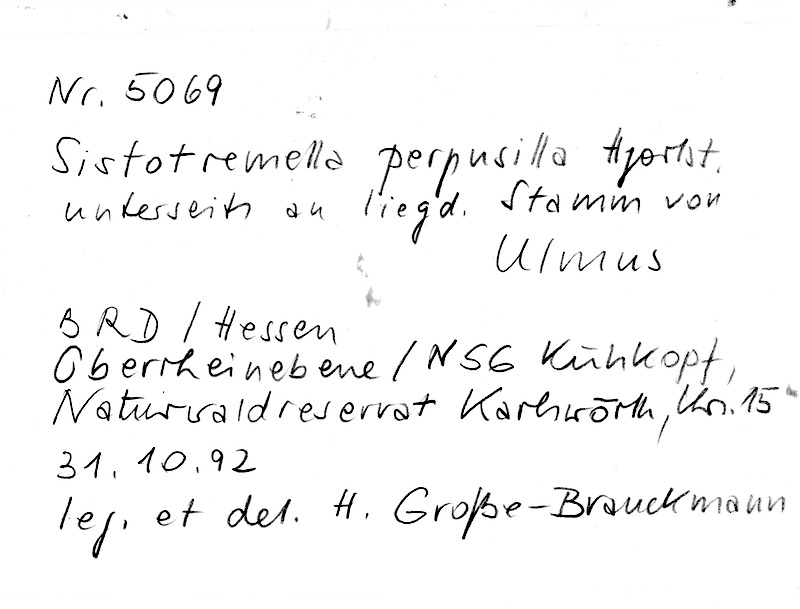 Nr. 5069
Sistotremella perpusilla Hjortst.
unterseits an liegd. Stamm von
Ulmus
BRD / Hessen
Oberrheinebene / NSG Kühkopf,
Naturwaldreservat Karlwörth, 15
31.10.92
leg. et det. H. Große-Brauckmann